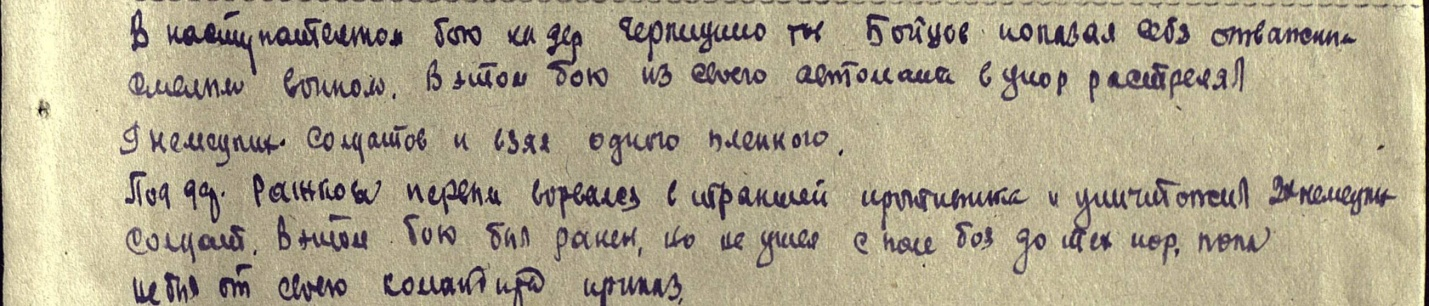 В наступательном бою на дер Черпицино тов Бойцов показал себя отважным
смелым воином. В этом бою из своего автомата в упор расстрелял
9 немецких солдатов и взял одного пленного.
Под др. первым ворвался в траншей противника и уничтожил 2х немецких
солдат. В этом бою был ранен, но не ушел с поле боя до тех пор, пока
не был от своего командира приказ.